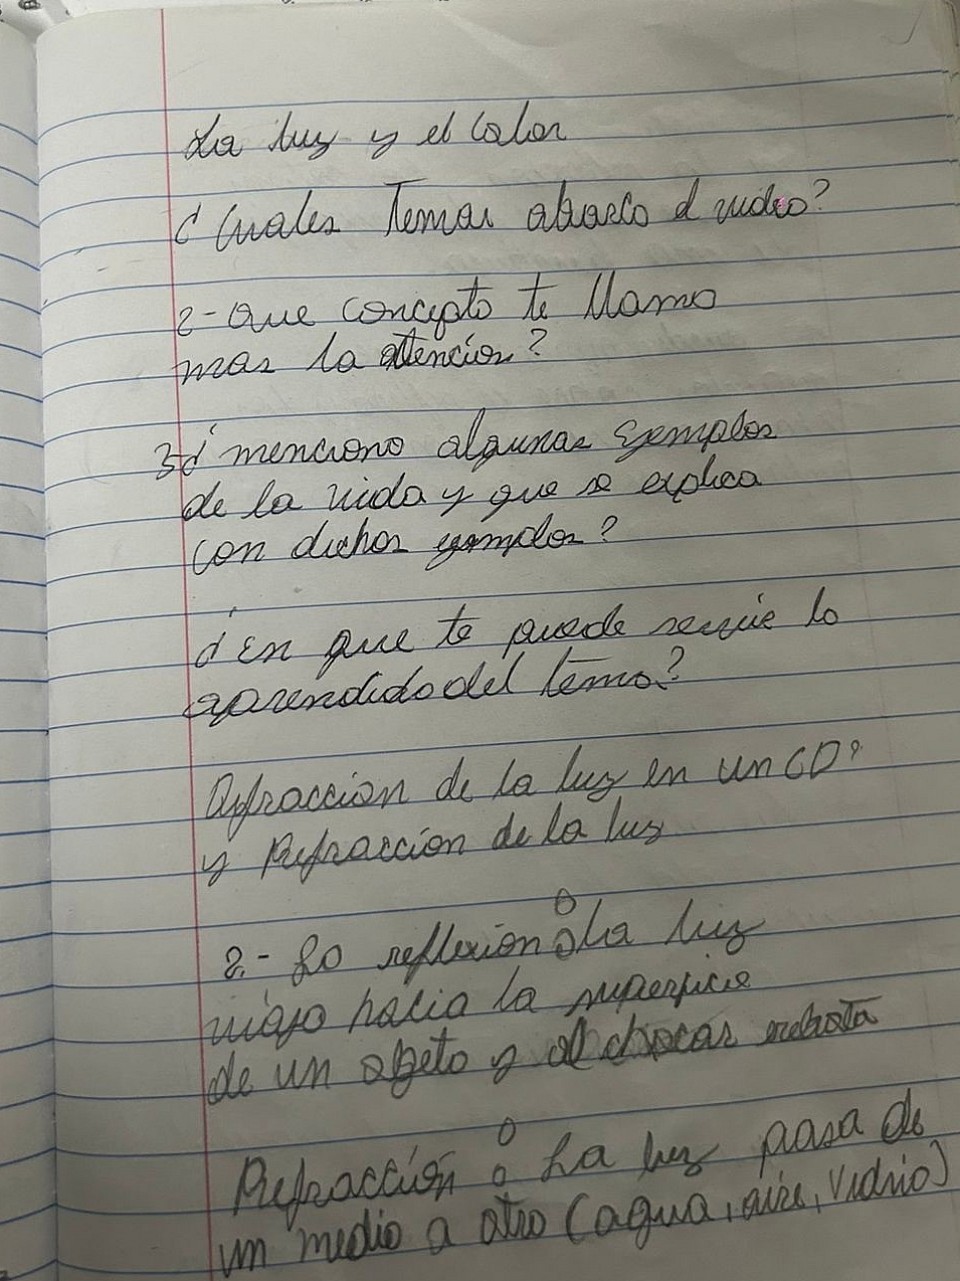 La luz y el Color
¿Cuales Temas abarco el video?
2- Que concepto te llamo
mas la attencion?
3¿ menciono algunas ejemplos
de la vida y que se explica
con dichos ejemplos?
¿En que te puede servie lo
aprendido del tema?
Difraccion de la luz en un CD?
y Refraccion de la luz
2.- La reflexion: La luz
viaja hacia la superficie
de un objeto y al chocar rebota
Refracción: La luz pasa de
un medio a otro (agua, aire, vidrio)